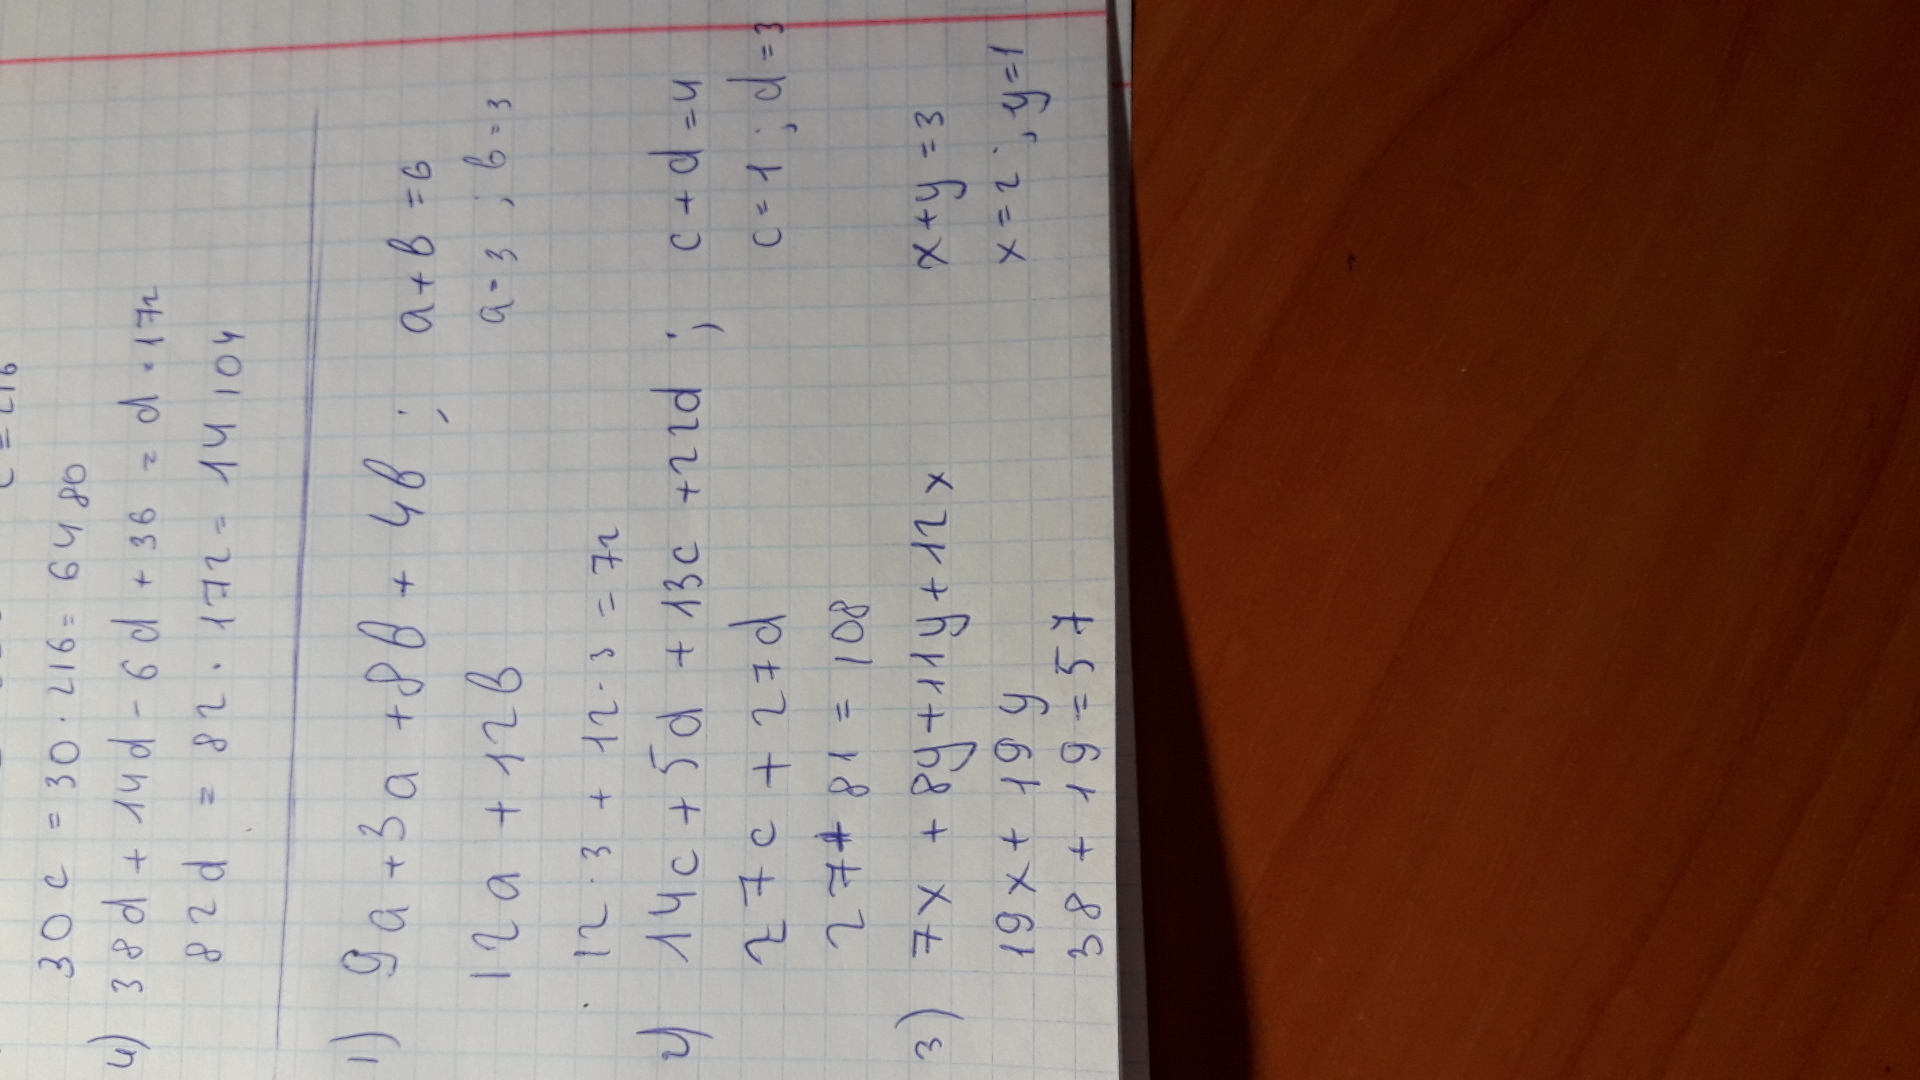 c = 216
30c = 30 · 216 = 6480
4) 38d + 14d - 6d + 36 = d = 172
82d = 82 · 172 = 14104
1) 9a + 3a + 8b + 4b ; a + b = 6
12a + 12b a = 3 ; b = 3
12 · 3 + 12 · 3 = 72
2) 14c + 5d + 13c + 22d ; c + d = 4
27c + 27d c = 1 ; d = 3
27 + 81 = 108
3) 7x + 8y + 11y + 12x x + y = 3
19x + 19y x = 2 ; y = 1
38 + 19 = 57